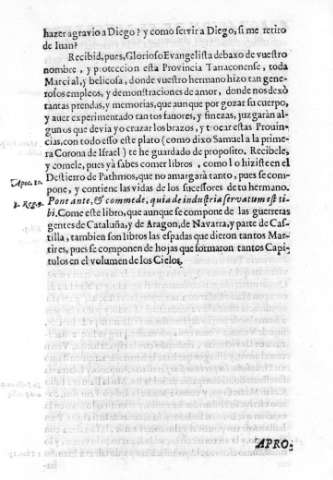 hazer agravio a Diego? y como servir a Diego, si me retiro
de Iuan?
Recibid, pues, Glorioso Evangelista debaxo de vuestro
nombre, y proteccion esta Provincia Tarraconense, toda
Marcial, y belicosa, donde vuestro hermano hizo tan gene-
rosos empleos, y demonstraciones de amor, donde nos dexò
tantas prendas, y memorias, que aunque por gozar su cuerpo,
y aver experimentado tantos favores, y finezas, juzgaràn al-
gunos que devia yo cruzar los brazos, y trocar estas Provin-
cias, con todo esso este plato (como dixo Samuel a la prime-
ra Corona de Israel) te he guardado de proposito. Recibele,
y comele, pues yà sabes comer libros, como lo hiziste en el
Apoc. 10.
Destierro de Pathmos, que no amargarà tanto, pues se com-
pone, y contiene las vidas de los sucessores de tu hermano.
1. Reg. 9.
Pone ante, & commede, quia de industria servatum est ti-
bi. Come este libro, que aunque se compone de las guerreras
gentes de Cataluña, y de Aragon, de Navarra, y parte de Cas-
tilla, tambien son libros las espadas que dieron tantos Mar-
tires, pues se componen de hojas que formaron tantos Capi-
tulos en el volumen de los Cielos.
APRO-